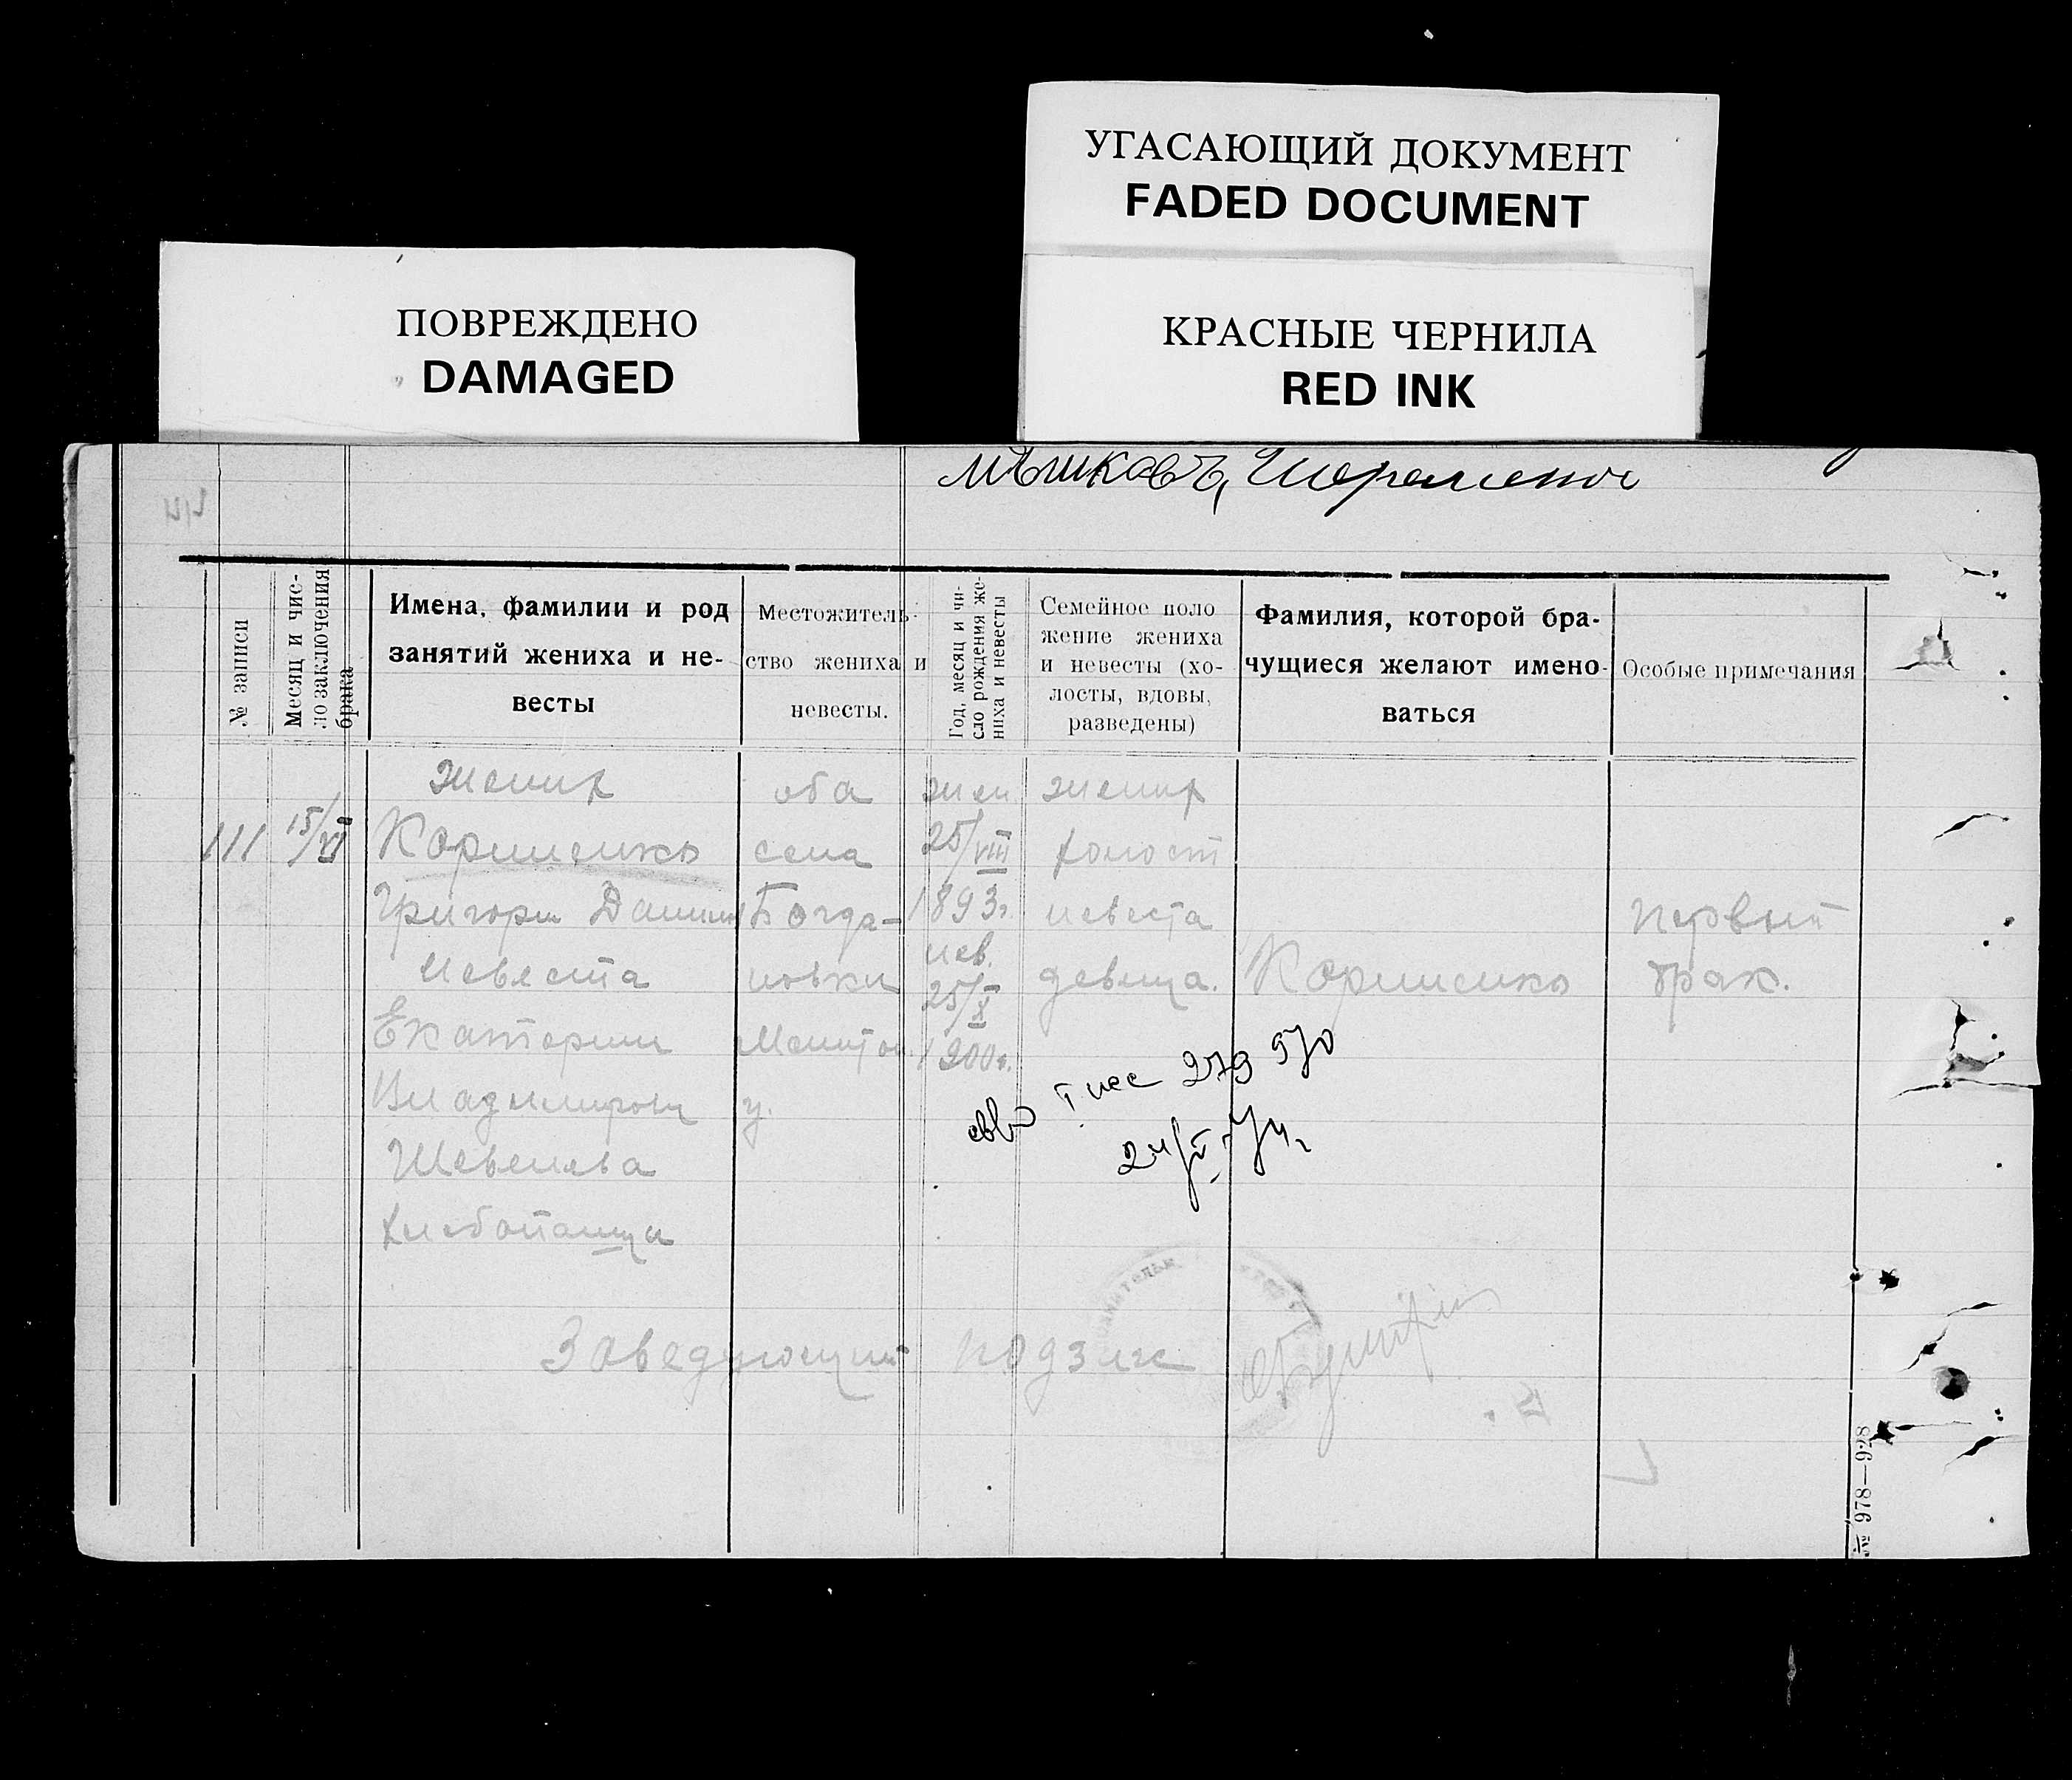 УГАСАЮЩИЙ ДОКУМЕНТ
FADED DOCUMENT
КРАСНЫЕ ЧЕРНИЛА
RED INK
ПОВРЕЖДЕНО
DAMAGED
№ записи
Месяц и чис-
ло заключения
брака
Имена, фамилии и род
занятий жениха и не-
весты
Местожитель-
ство жениха и
невесты.
Год, месяц и чи-
сло рождения же-
ниха и невесты
Семейное поло
жение жениха
и невесты (хо-
лосты, вдовы,
разведены)
Фамилия, которой бра-
чущиеся желают имено-
ваться
Особые примечания
111
15/VI
жених
Корниенко
Григори
невеста
Екатерина
Шевелева
оба
села
Богда-
новки
Мелитоп.
у.
жен
25/VIII
1893г.
нев.
25/X
1900г.
жених
холост
невеста
девица.
Корниенко
первый
брак.
279 570
Заведующий подзагс
№ 978—928